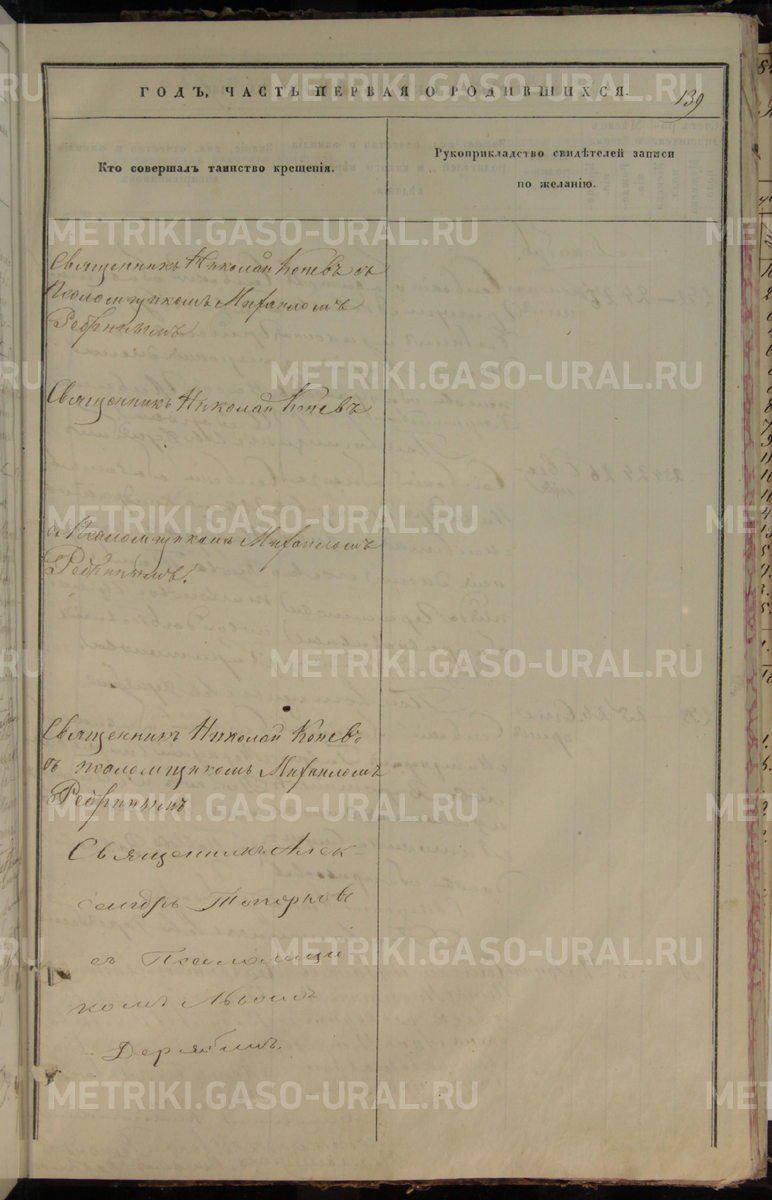 ГОДЪ, ЧАСТЬ ПЕРВАЯ О РОДИВШИХСЯ.
139
Кто совершалъ таинство крещенія.
Рукоприкладство свидѣтелей записи
по желанію.
Священникъ Николай Коневъ съ
Псаломщикомъ Михаиломъ
Ребринымъ
Священникъ Николай Коневъ
съ Псаломщикомъ Михаиломъ
Ребринымъ.
Священникъ Николай Коневъ
съ псаломщикомъ Михаиломъ
Ребринымъ
Священникъ Алек-
сандръ Топорковъ
съ Псаломщи
комъ Львомъ
METRIKI.GASO-URAL.RU